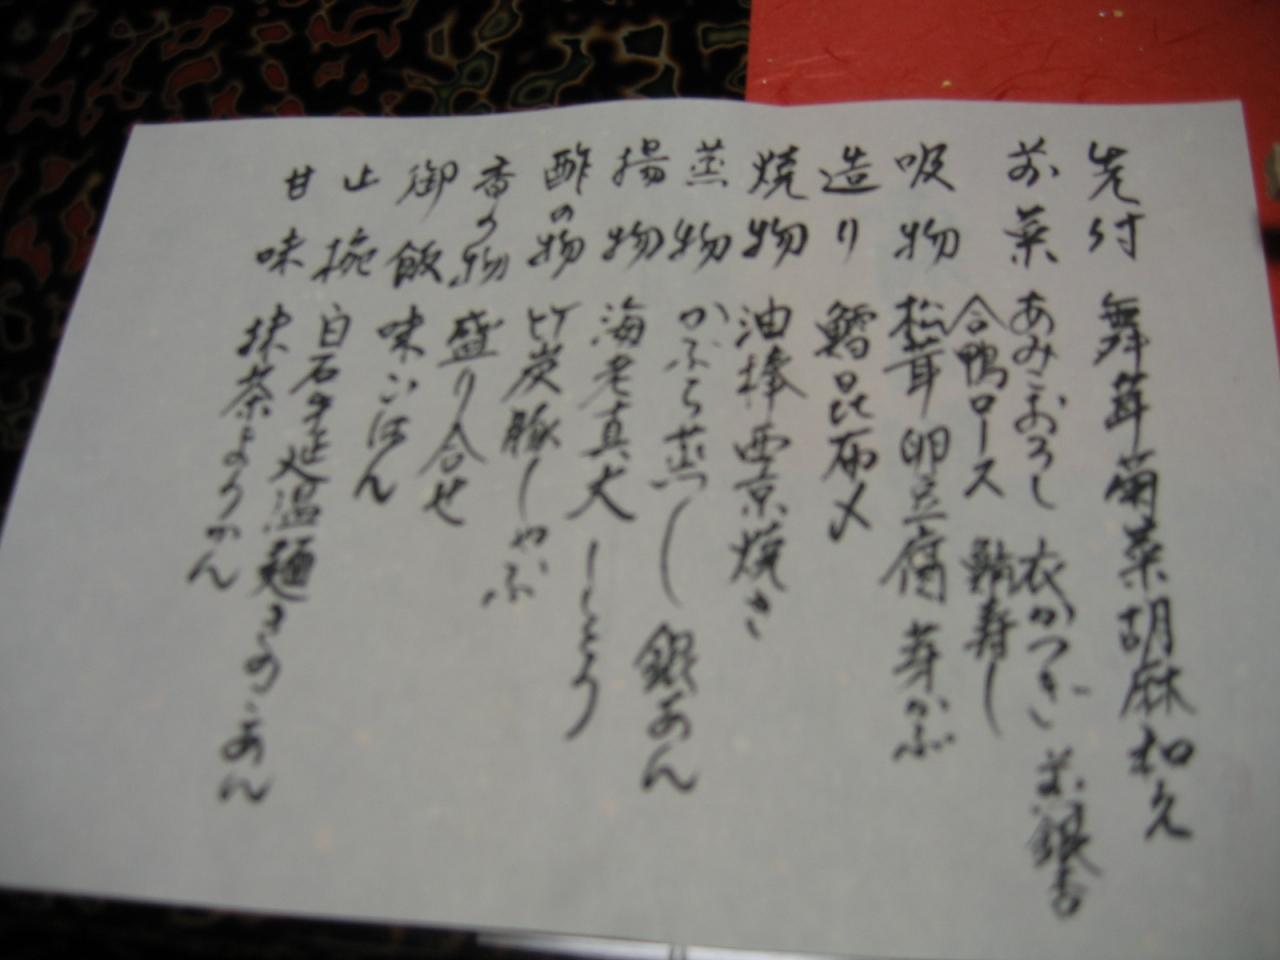 先付 舞茸菊菜胡麻和え
前菜 あみこおろし 衣かつぎ 煎銀杏
合鴨ロース 鯖寿し
吸物 松茸 卵豆腐 芽かぶ
造り 鱈昆布〆
焼物 油捧西京焼き
蒸物 かぶら蒸し 銀あん
揚物 海老真丈 ししとう
酢の物 竹炭豚しゃぶ
香の物 盛り合せ
御飯 味ごはん
止椀 白石手延温麺きのこあん
甘味 抹茶ようかん